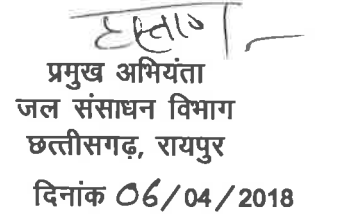 हस्ता०/-
प्रमुख अभियंता
जल संसाधन विभाग
छत्तीसगढ़, रायपुर
दिनांक 06/04/2018